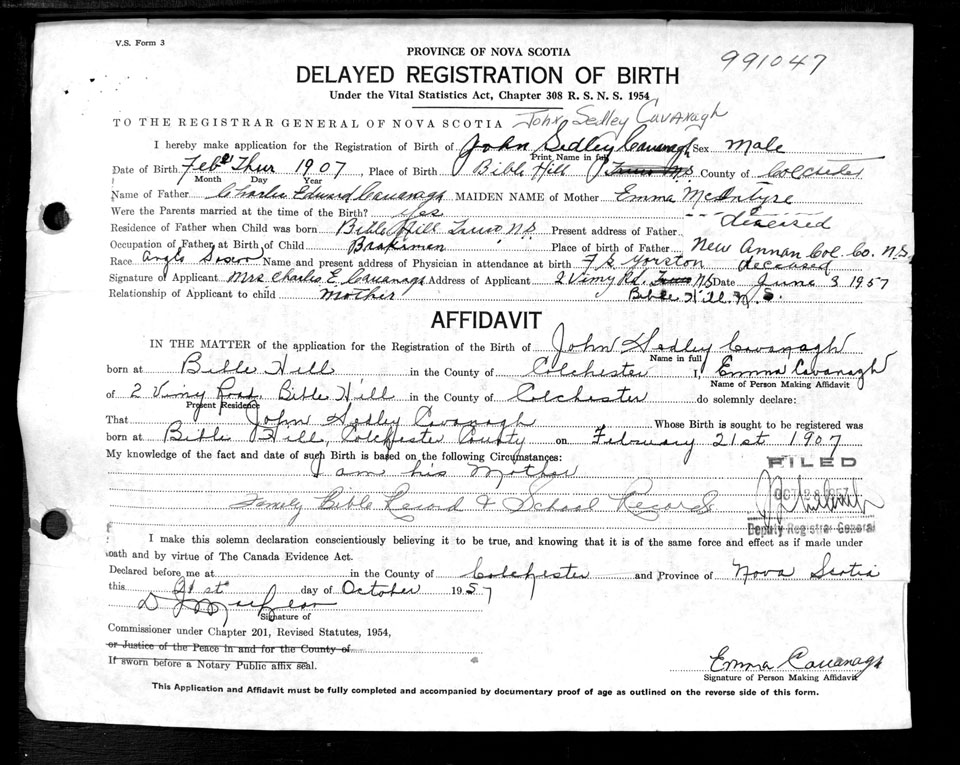 V.S. Form 3
PROVINCE OF NOVA SCOTIA
991047
DELAYED REGISTRATION OF BIRTH
Under the Vital Statistics Act, Chapter 308 R. S. N. S. 1954
John Sedley Cavanagh
TO THE REGISTRAR GENERAL OF NOVA SCOTIA
I hereby make application for the Registration of Birth of John Sedley Cavanagh Sex Male
Print Name in full
Date of Birth Feb 21 Thur 1907, Place of Birth Bible Hill Truro N.S. County of Colchester
Month Day Year
Name of Father Charles Edward Cavanagh MAIDEN NAME of Mother Emma McIntyre
Were the Parents married at the time of the Birth? Yes
deceased
Residence of Father when Child was born Bible Hill Truro N.S. Present address of Father
Occupation of Father at Birth of Child Brakeman Place of birth of Father New Annan Col. Co. N.S.
Race Anglo Saxon Name and present address of Physician in attendance at birth F.S. Yorston deceased
Signature of Applicant Mrs Charles E. Cavanagh Address of Applicant 2 Vimy Rd. Truro N.S Date June 3 1957
Relationship of Applicant to child Mother Bible Hill N.S.
AFFIDAVIT
IN THE MATTER of the application for the Registration of the Birth of John Sedley Cavanagh
Name in full
born at Bible Hill in the County of Colchester I, Emma Cavanagh
Name of Person Making Affidavit
of 2 Vimy Road, Bible Hill in the County of Colchester do solemnly declare:
Present Residence
That John Sedley Cavanagh Whose Birth is sought to be registered was
born at Bible Hill, Colchester County on February 21st 1907
My knowledge of the fact and date of such Birth is based on the following Circumstances:
FILED
I am his Mother
OCT 28 1957
Family Bible Record & School Records
Deputy Registrar General
I make this solemn declaration conscientiously believing it to be true, and knowing that it is of the same force and effect as if made under
oath and by virtue of The Canada Evidence Act.
Declared before me at in the County of Colchester and Province of Nova Scotia
this 21st day of October 1957
Signature of
Commissioner under Chapter 201, Revised Statutes, 1954,
or Justice of the Peace in and for the County of
If sworn before a Notary Public affix seal.
Emma Cavanagh
Signature of Person Making Affidavit
This Application and Affidavit must be fully completed and accompanied by documentary proof of age as outlined on the reverse side of this form.